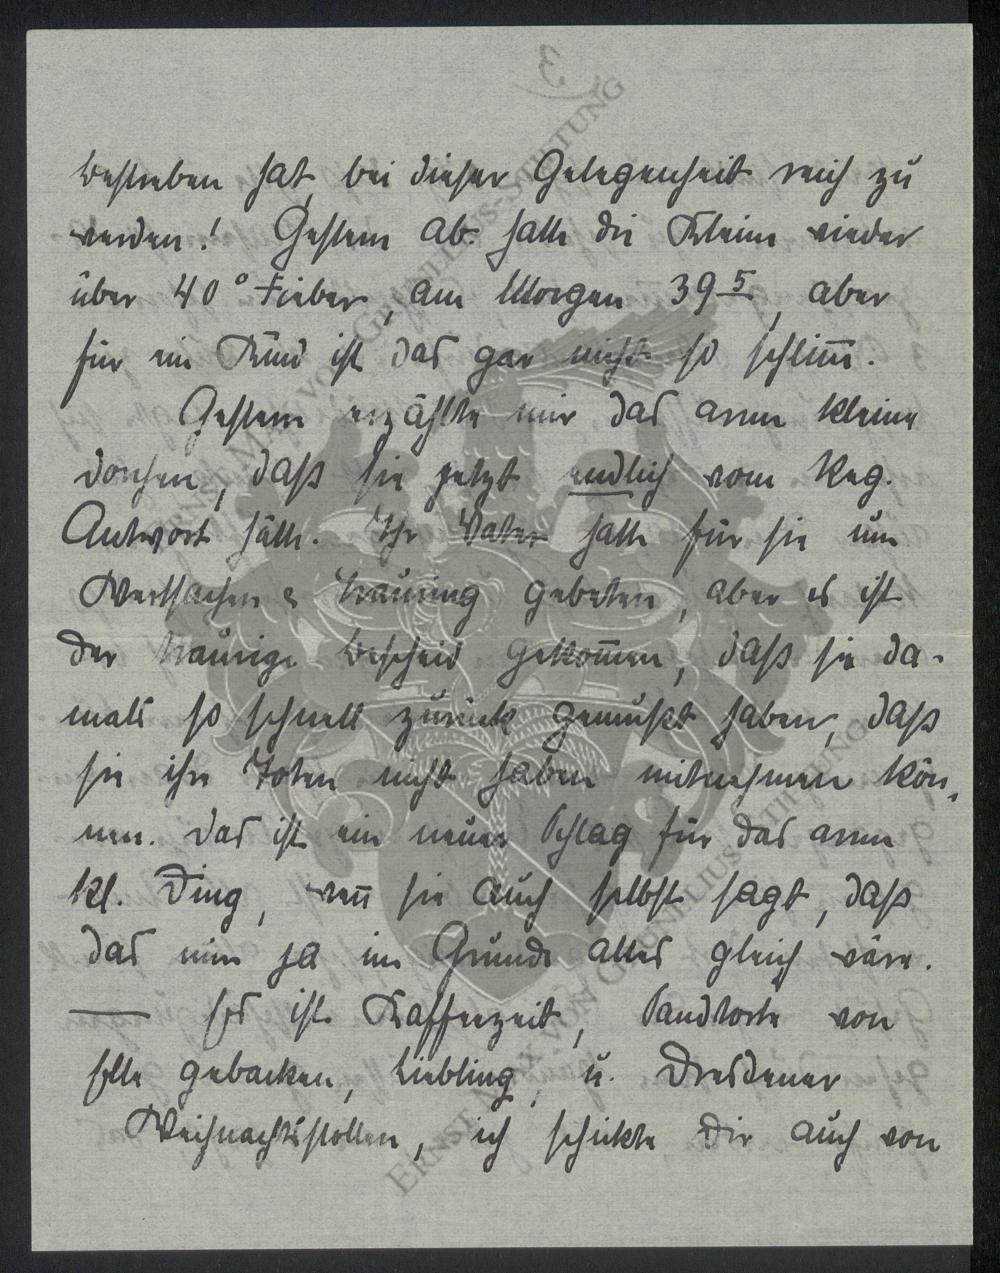 3
bestreben hat, bei dieser Gelegenheit reich zu
werden! Gestern Ab. hatte die Kleine wieder
über 40° Fieber, am Morgen 39 5, aber
für ein Kind ist das gar nicht so schlim̄.
Gestern erzählte mir das arme kleine
Dorchen, daß sie jetzt endlich vom Reg.
Antwort hätte. Ihr Vater hatte für sie um
Wertsachen & Trauring gebeten, aber es ist
der traurige Bescheid gekom̄en, daß sie da-
mals so schnell zurück gemußt haben, daß
sie ihre Toten nicht haben mitnehmen kön-
nen. Das ist ein neuer Schlag für das arme
kl. Ding, wen̄ sie auch selbst sagt, daß
das nun ja im Grunde alles gleich wäre.
— Es ist Kaffeezeit, Sandtorte von
Elle gebacken, Liebling, u. Dresdener
Weihnachtsstollen, ich schickte Dir auch von
ERNST-MAX VON GRUNELIUS-STIFTUNG
ERNST-MAX VON GRUNELIUS-STIFTUNG